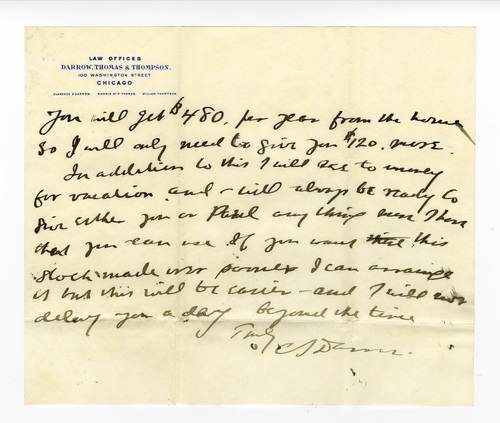 LAW OFFICES
DARROW, THOMAS & THOMPSON.
100 WASHINGTON STREET
CHICAGO
CLARENCE S. DARROW. MORRIS ST. P. THOMAS. WILLIAM THOMPSON.
You will get $480. per year from the house
so I will only need to give you $120. more.
In addition to this I will see to money
for vacation and – will always be ready to
give either you or Paul any thing more
that you can use. If you want this
stock made over sooner I can arrange
it but this will be easier – and I will not
delay you a day beyond the time
Truly
C S Darrow.